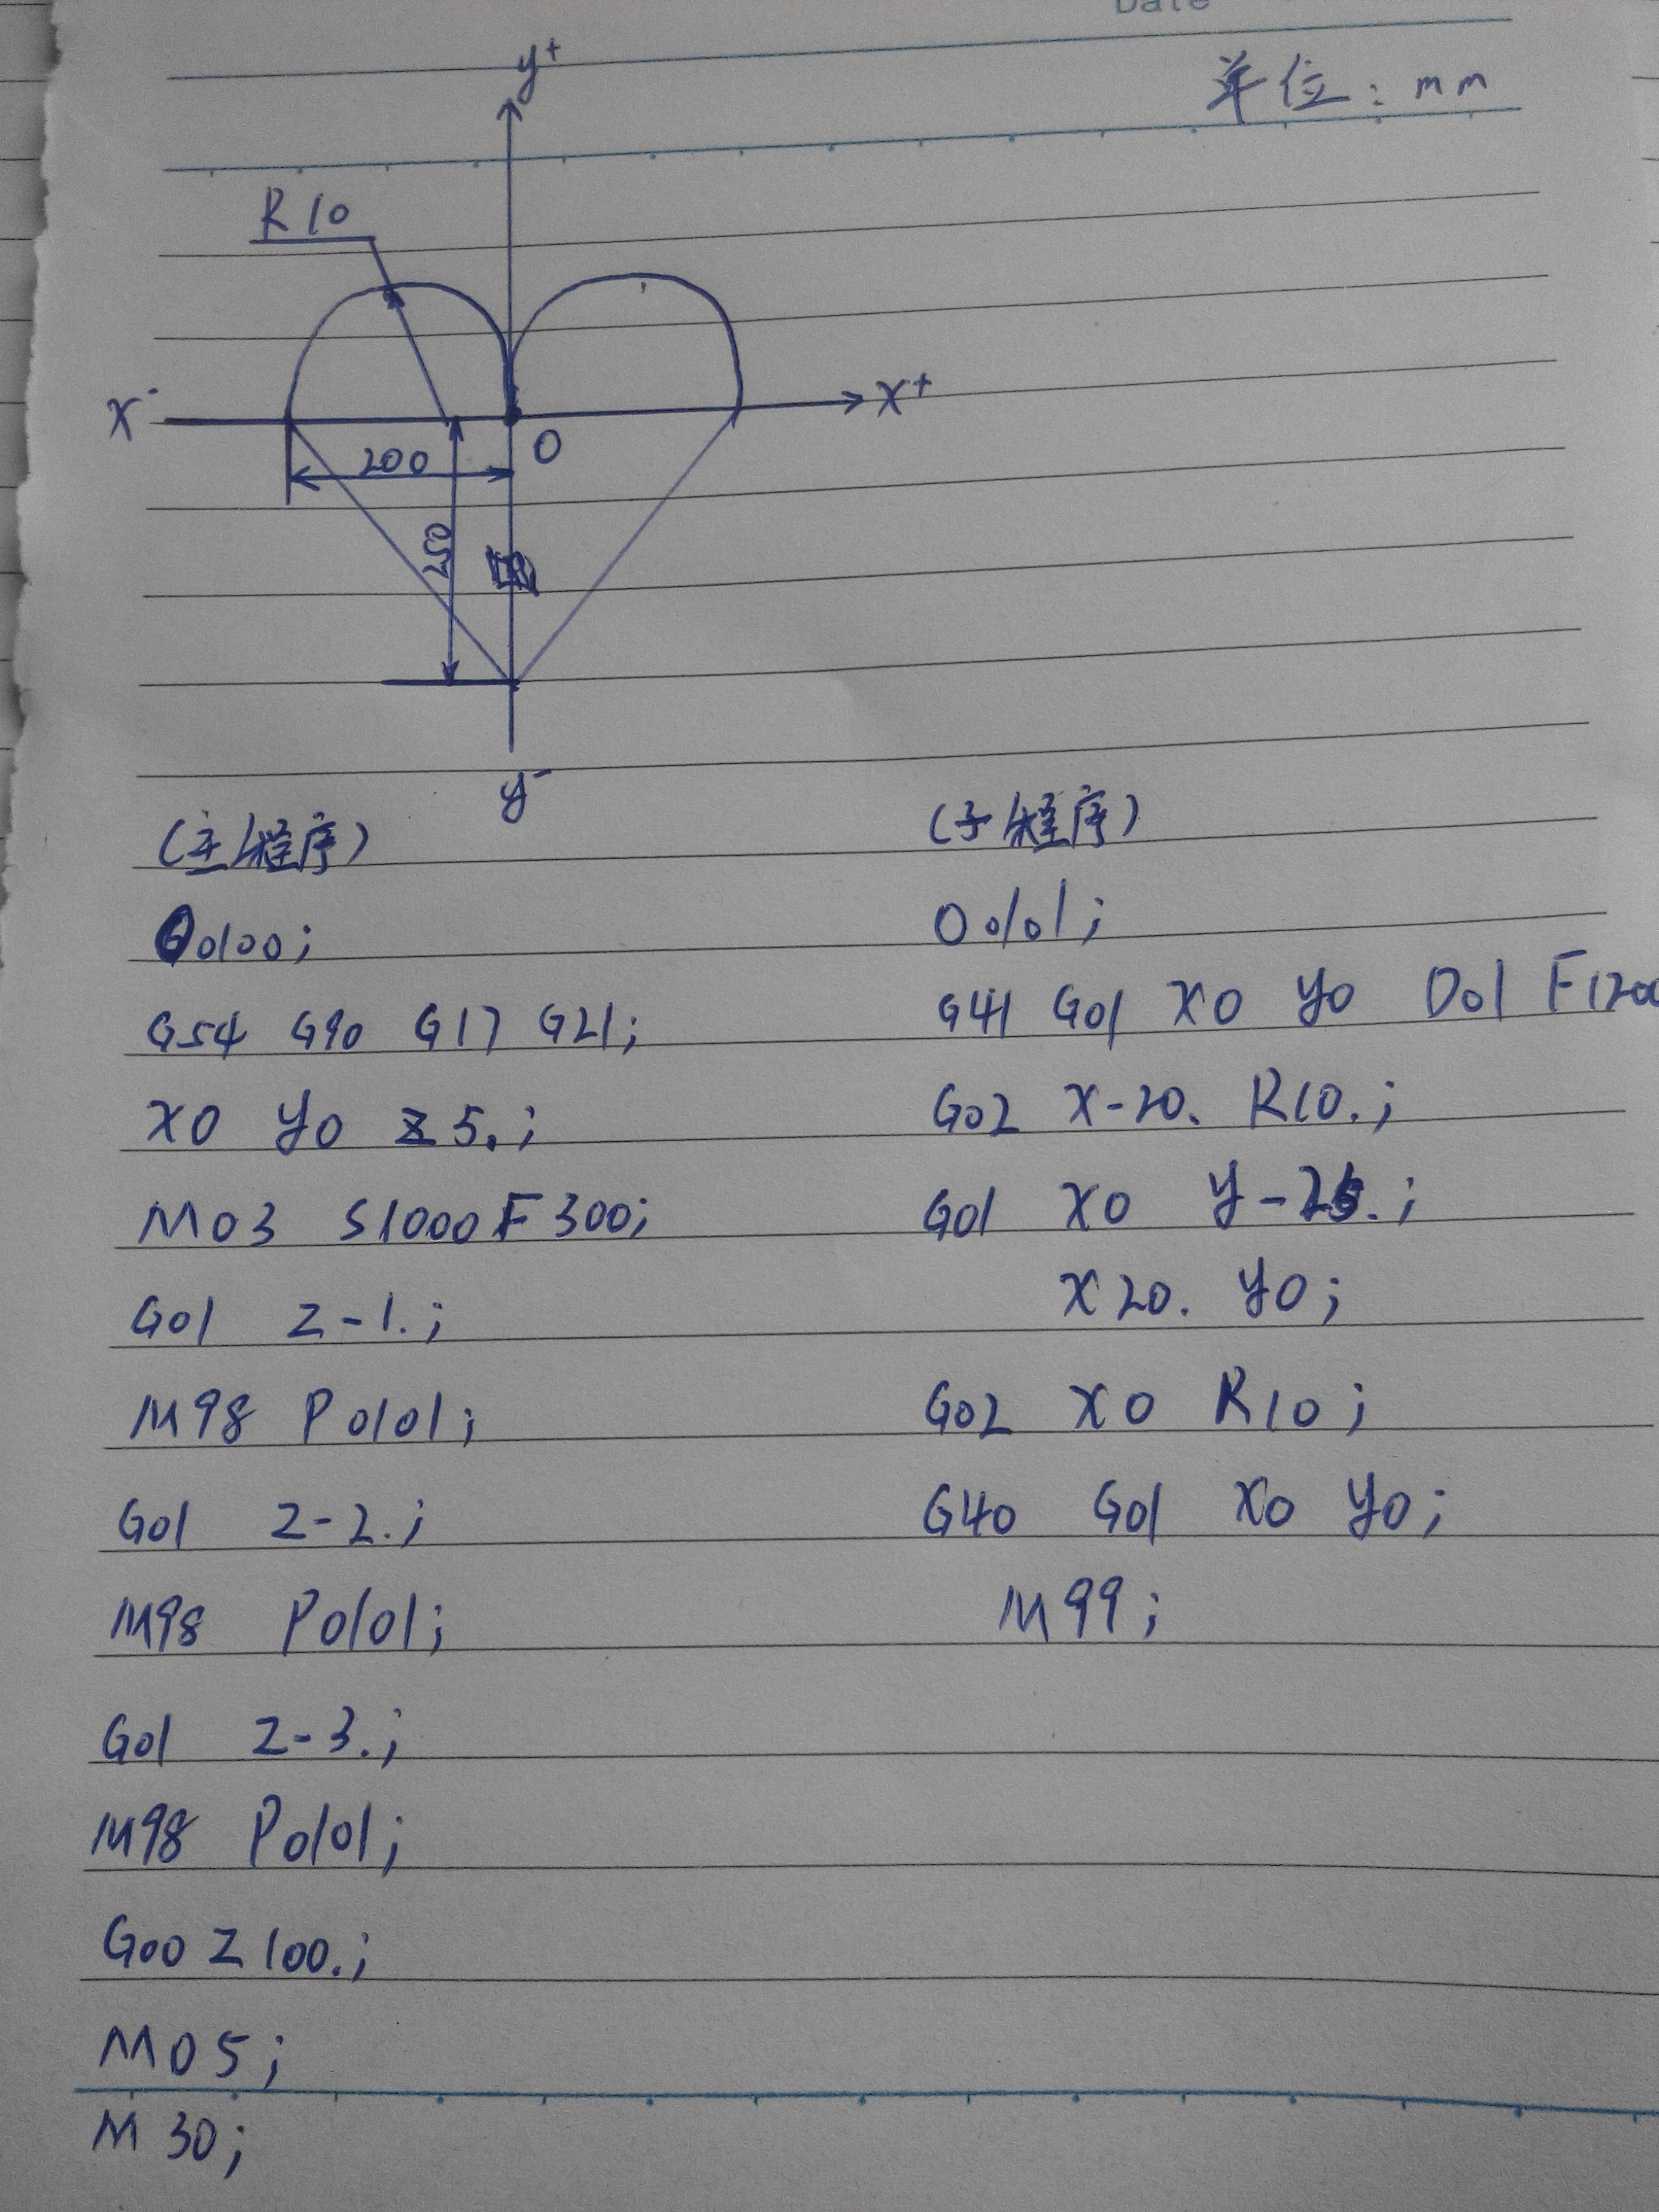 Date
单位：mm
y+
R10
X-
X+
O
200
250
y-
(主程序)
O0100;
G54 G90 G17 G21;
X0 Y0 Z5.;
M03 S1000 F300;
G01 Z-1.;
M98 P0101;
G01 Z-2.;
M98 P0101;
G01 Z-3.;
M98 P0101;
G00 Z100.;
M05;
M30;
(子程序)
O0101;
G41 G01 X0 Y0 D01 F1200
G02 X-20. R10.;
G01 X0 Y-25.;
X20. Y0;
G02 X0 R10;
G40 G01 X0 Y0;
M99;